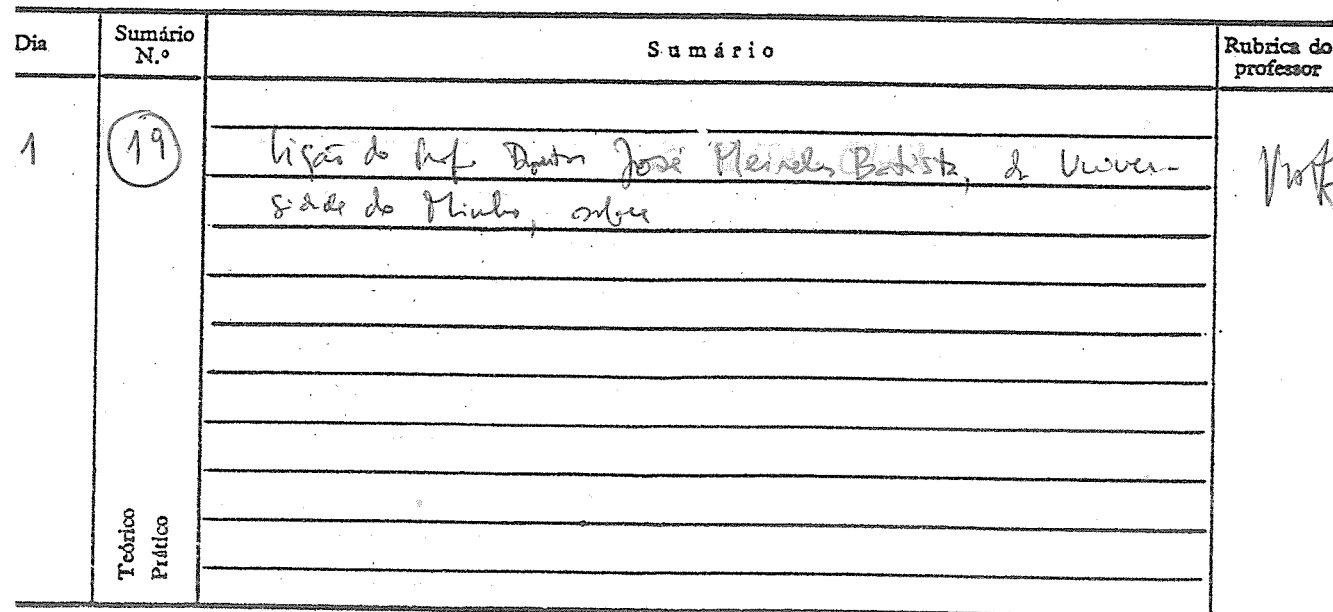 Dia Sumário N.º Sumário Rubrica do professor
1 19 Lição do Prof. Doutor José Meireles Batista, da Univer-
sidade do Minho, sobre
Teórico
Prático